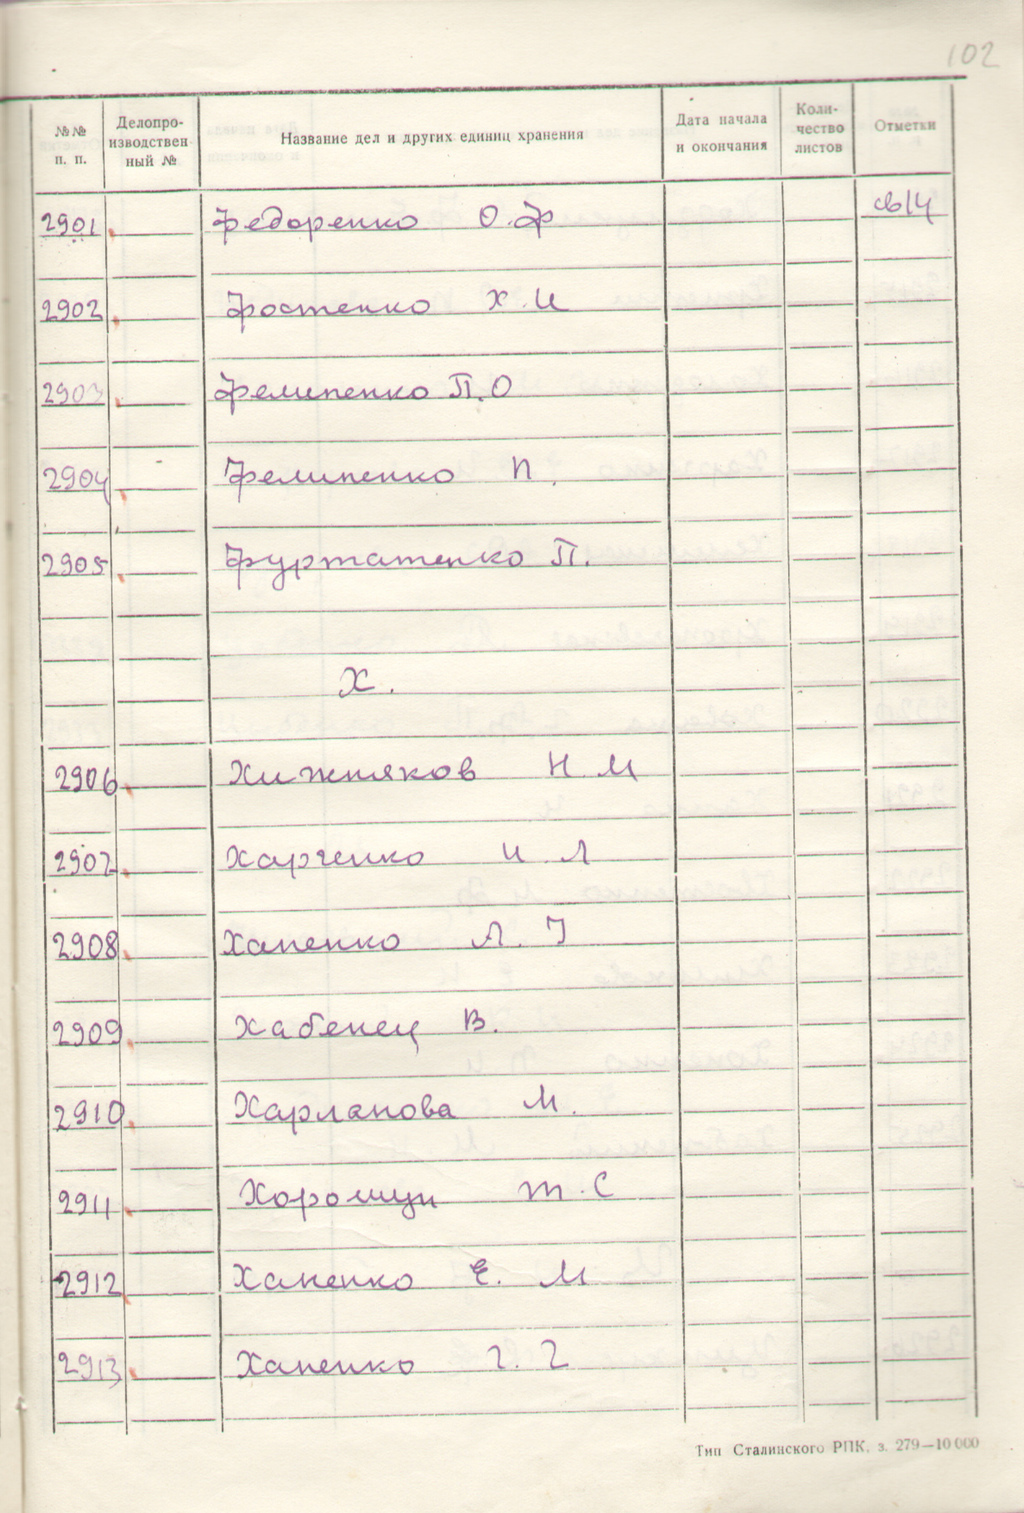 102
№№ п. п. Делопро-изводствен-ный № Название дел и других единиц хранения Дата начала и окончания Коли-чество листов Отметки
2901 Федоренко О. Ф св14
2902 Фостенко Х. И
2903 Фелипенко П. О
2904 Фелипенко П.
2905 Фуртатенко П.
Х.
2906 Хижняков Н. М
2907 Харченко И. Л
2908 Хапенко Л. І
2909 Хабенец В.
2910 Харланова М.
2911 Хоромцун Т. С
2912 Ханенко Е. М
2913 Хапенко Г. Г
Тип Сталинского РПК, з. 279—10 000